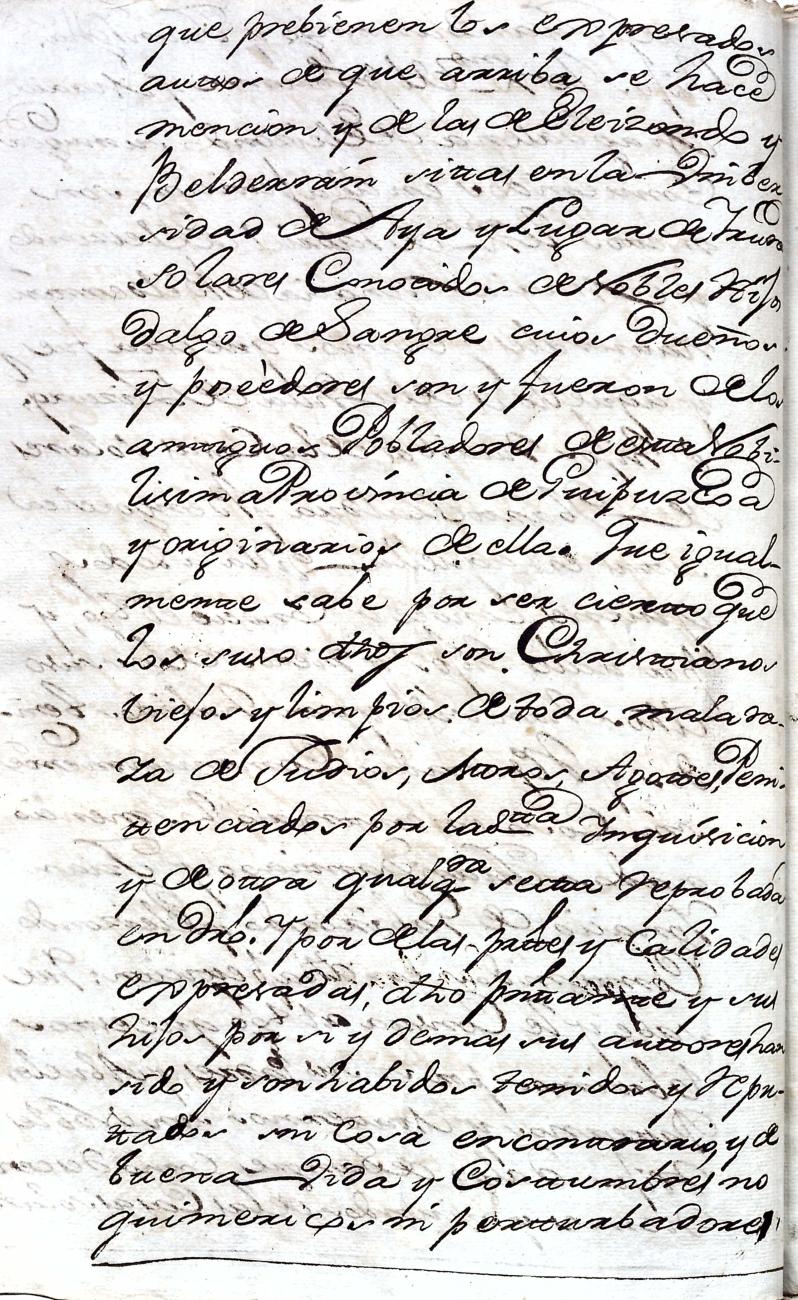 que prebienen los expresados
autos de que arriba se hace
mencion y de las de Eleizondo y
Belderrain sitas en la Vniber
sidad de Aya y Lugar de Yrure
solares Conocidos de Nobles Hijos
dalgo de Sangre cuios Dueños
y poseedores son y fueron de los
antiguos Pobladores de esta Nobi-
lisima Provincia de Guipuzcoa
y originarios de ella. Que igual-
mente sabe por ser cierto que
los suso dhos son Christianos
viejos y limpios de toda mala ra-
za de Judios, Moros, Agotes, Peni-
tenciados por la Sta Inquisicion
y de otra qualqra secta reprobada
en Dro. Y por de las partes y Calidades
expresadas, dho y sus
hijos por si y demas sus autores han
sido y son habidos tenidos y repu-
tados sin Cosa en contrario, y de
buena Vida y Costumbres no
quimericos ni perturbadores